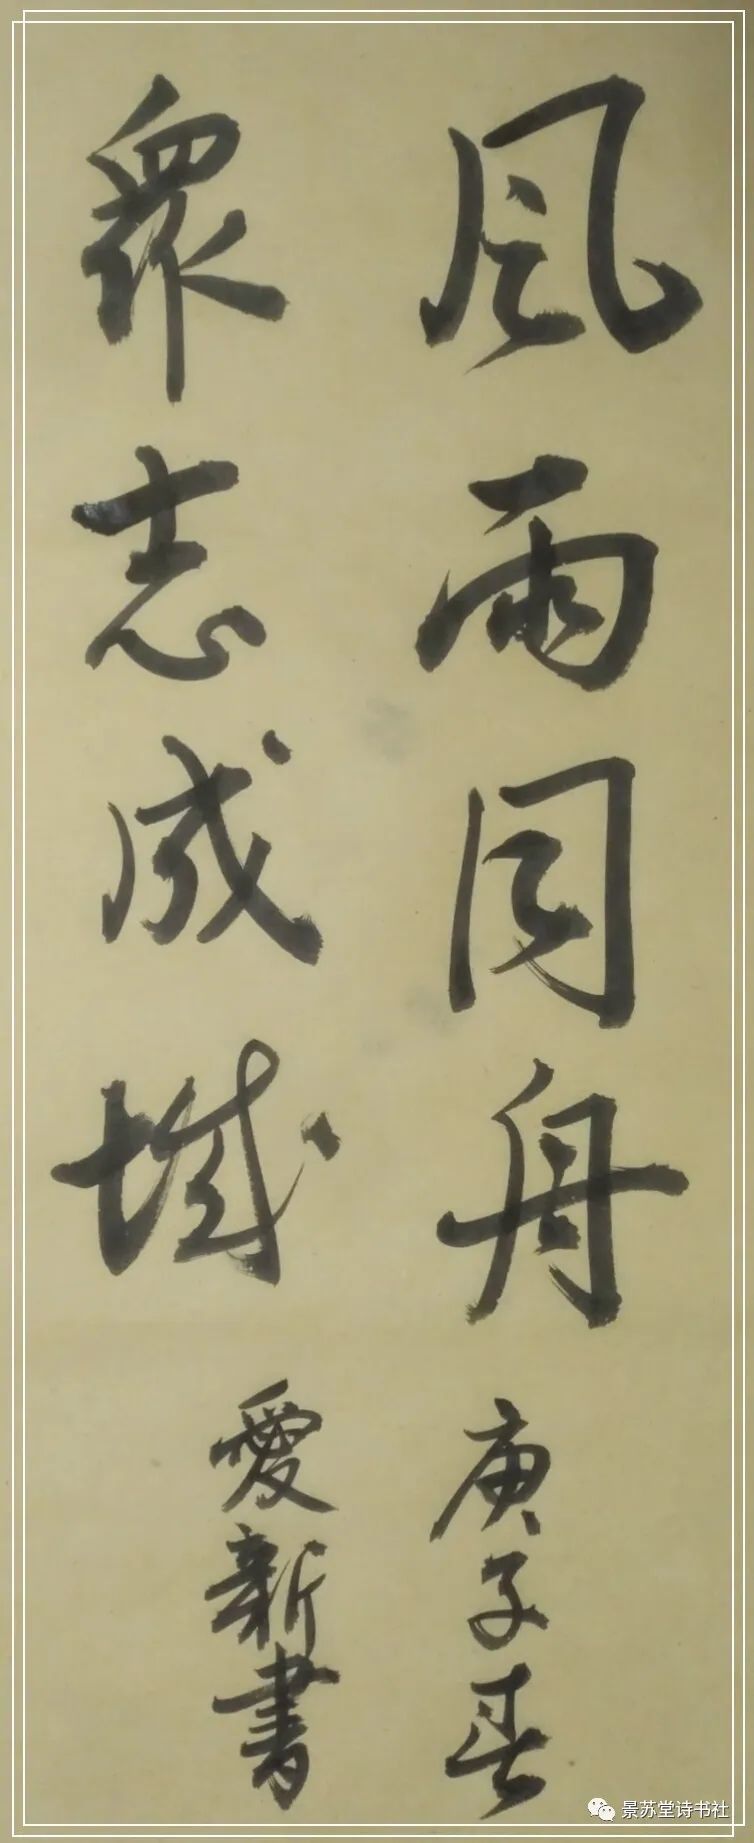 風雨同舟
庚子春
衆志成城
愛新書
景苏堂诗书社